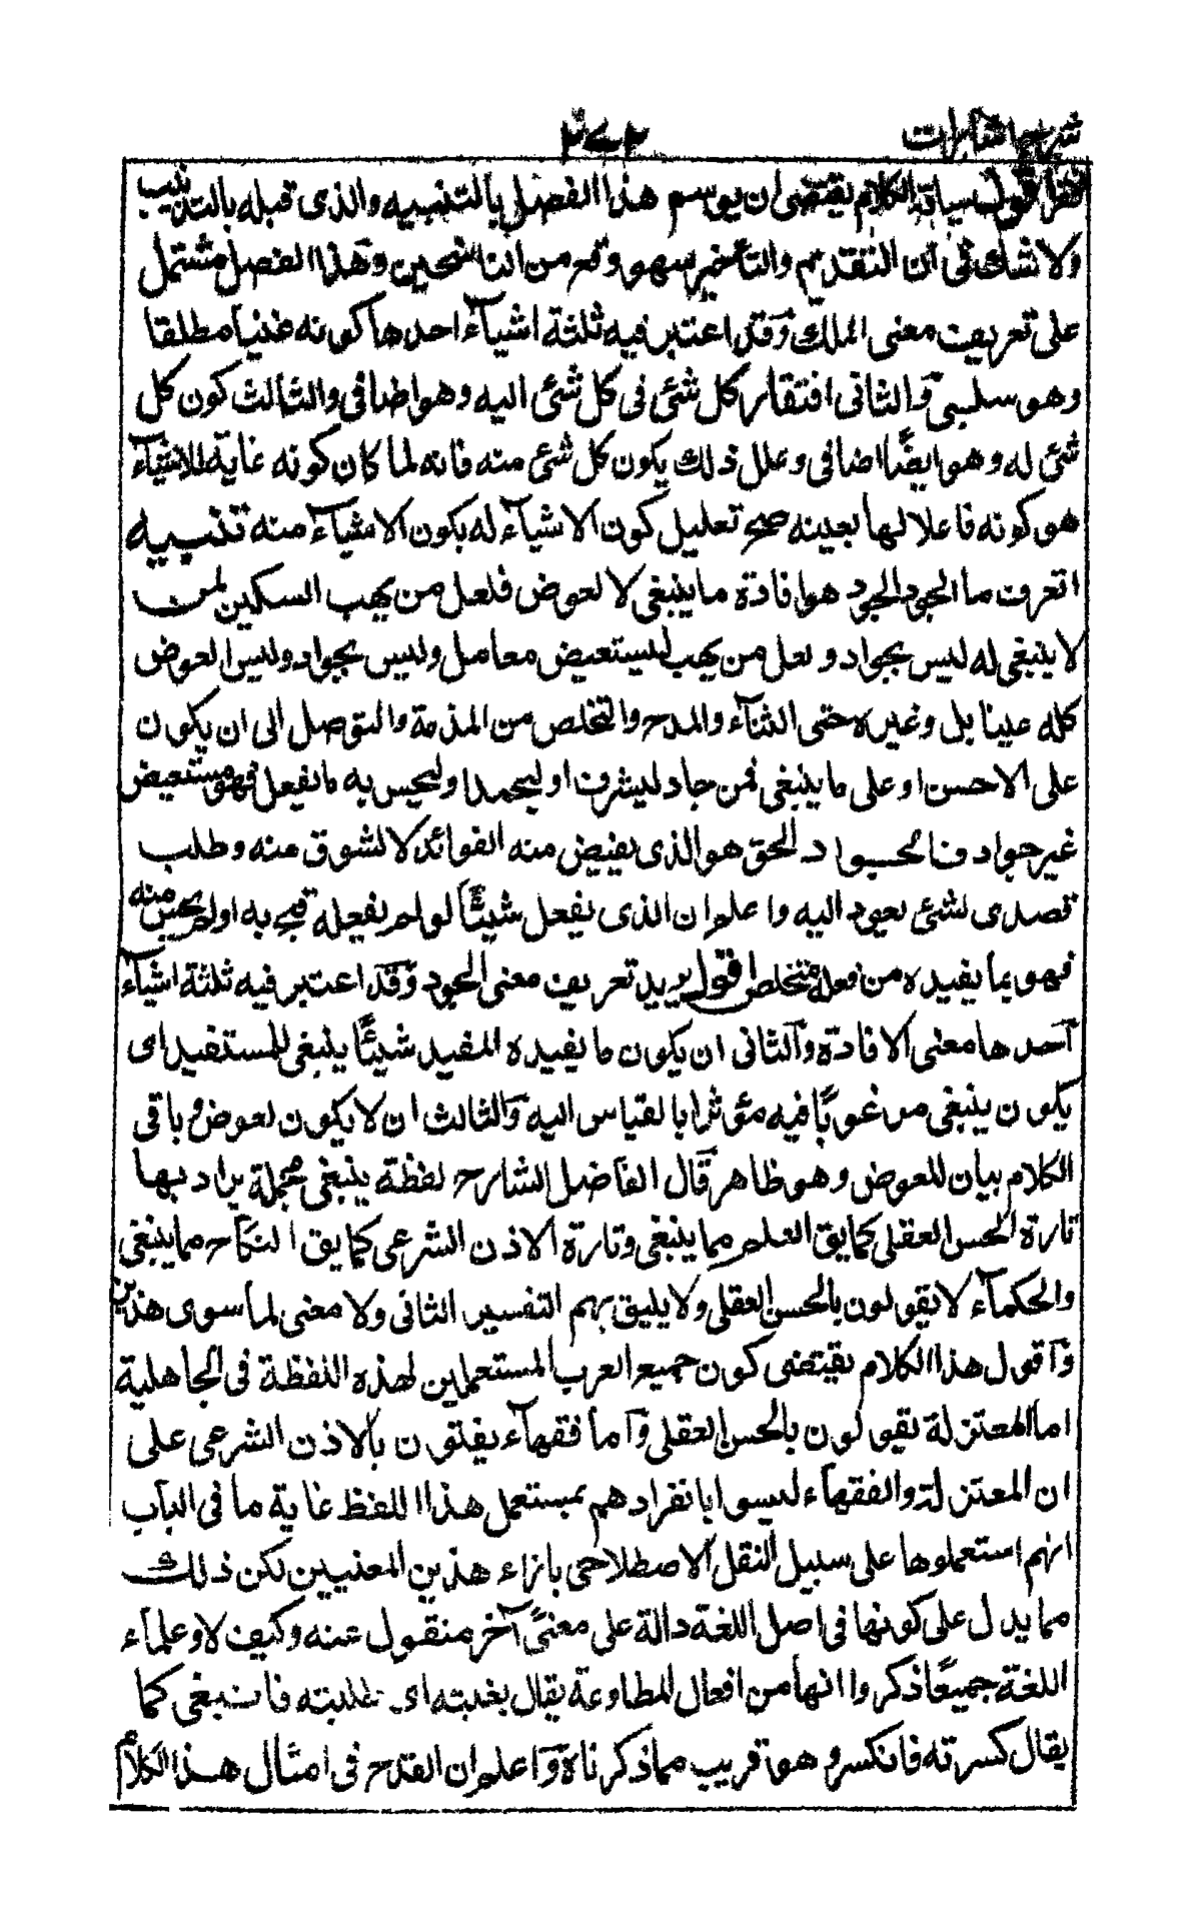 شرح اشارات
فقرا قول سياقة الكلام يقتضى ان يوسم هذا الفصل بالتنبيه والذى قبله بالتذنيب
ولا شك فى ان التقديم والتاخير سهو وقع من الناسخين وهذا الفصل مشتمل
على تعريف معنى الملك وقد اعتبر فيه ثلثة اشياء احدها كونه غنيا مطلقا
وهو سلبى والثانى افتقار كل شئ فى كل شئ اليه وهو اضافى والثالث كون كل
شئ له وهو ايضًا اضافى وعلل ذلك بكون كل شئ منه فانه لما كان كونه غاية للاشياء
هو كونه فاعلا لها بعينه صح تعليل كون الاشياء له بكون الاشياء منه تنبيه
اتعرف ما الجود الجود هو افادة ما ينبغى لا لعوض فلعل من يهب السكين لمن
لا ينبغى له ليس بجواد ولعل من يهب ليستعيض معامل وليس بجواد وليس العوض
كله عينا بل وغيره حتى الثناء والمدح والتخلص من المذمة والتوصل الى ان يكون
على الاحسن او على ما ينبغى فمن جاد ليشرف او ليحمد او ليحسن به ما يفعل فهو مستعيض
غير جواد فالجواد الحق هو الذى يفيض منه الفوائد لا لشوق منه وطلب
قصدى لشئ يعود اليه واعلم ان الذى يفعل شيئًا لو لم يفعله قبح به او لم يحسن منه
فهو بما يفيده من فعله متخلص اقول يريد تعريف معنى الجود وقد اعتبر فيه ثلثة اشياء
احدها معنى الافادة والثانى ان يكون ما يفيده المفيد شيئًا ينبغى للمستفيد اى
يكون ينبغى مرغوبًا فيه مؤثرا بالقياس اليه والثالث ان لا يكون لعوض وباقى
الكلام بيان للعوض وهو ظاهر قال الفاضل الشارح لفظة ينبغى مجملة يراد بها
تارة الحسن العقلى كما يق العلم مما ينبغى وتارة الاذن الشرعى كما يق النكاح مما ينبغى
والحكماء لا يقولون بالحسن العقلى ولا يليق بهم التفسير الثانى ولا معنى لما سوى هذين
واقول هذا الكلام يقتضى كون جميع العرب المستعملين لهذه اللفظة فى الجاهلية
اما المعتزلة يقولون بالحسن العقلى واما فقهاء يفتون بالاذن الشرعى على
ان المعتزلة والفقهاء ليسوا بانفرادهم بمستعمل هذا اللفظ غاية ما فى الباب
انهم استعملوها على سبيل النقل الاصطلاحى بازاء هذين المعنيين لكن ذلك
مما يدل على كونها فى اصل اللغة دالة على معنىً آخر منقول عنه وكيف لا وعلماء
اللغة جميعًا ذكروا انها من افعال المطاوعة يقال بغيته اى طلبته فانبغى كما
يقال كسرته فانكسر وهو قريب مما ذكرناه واعلم ان القدح فى امثال هذا الكلام